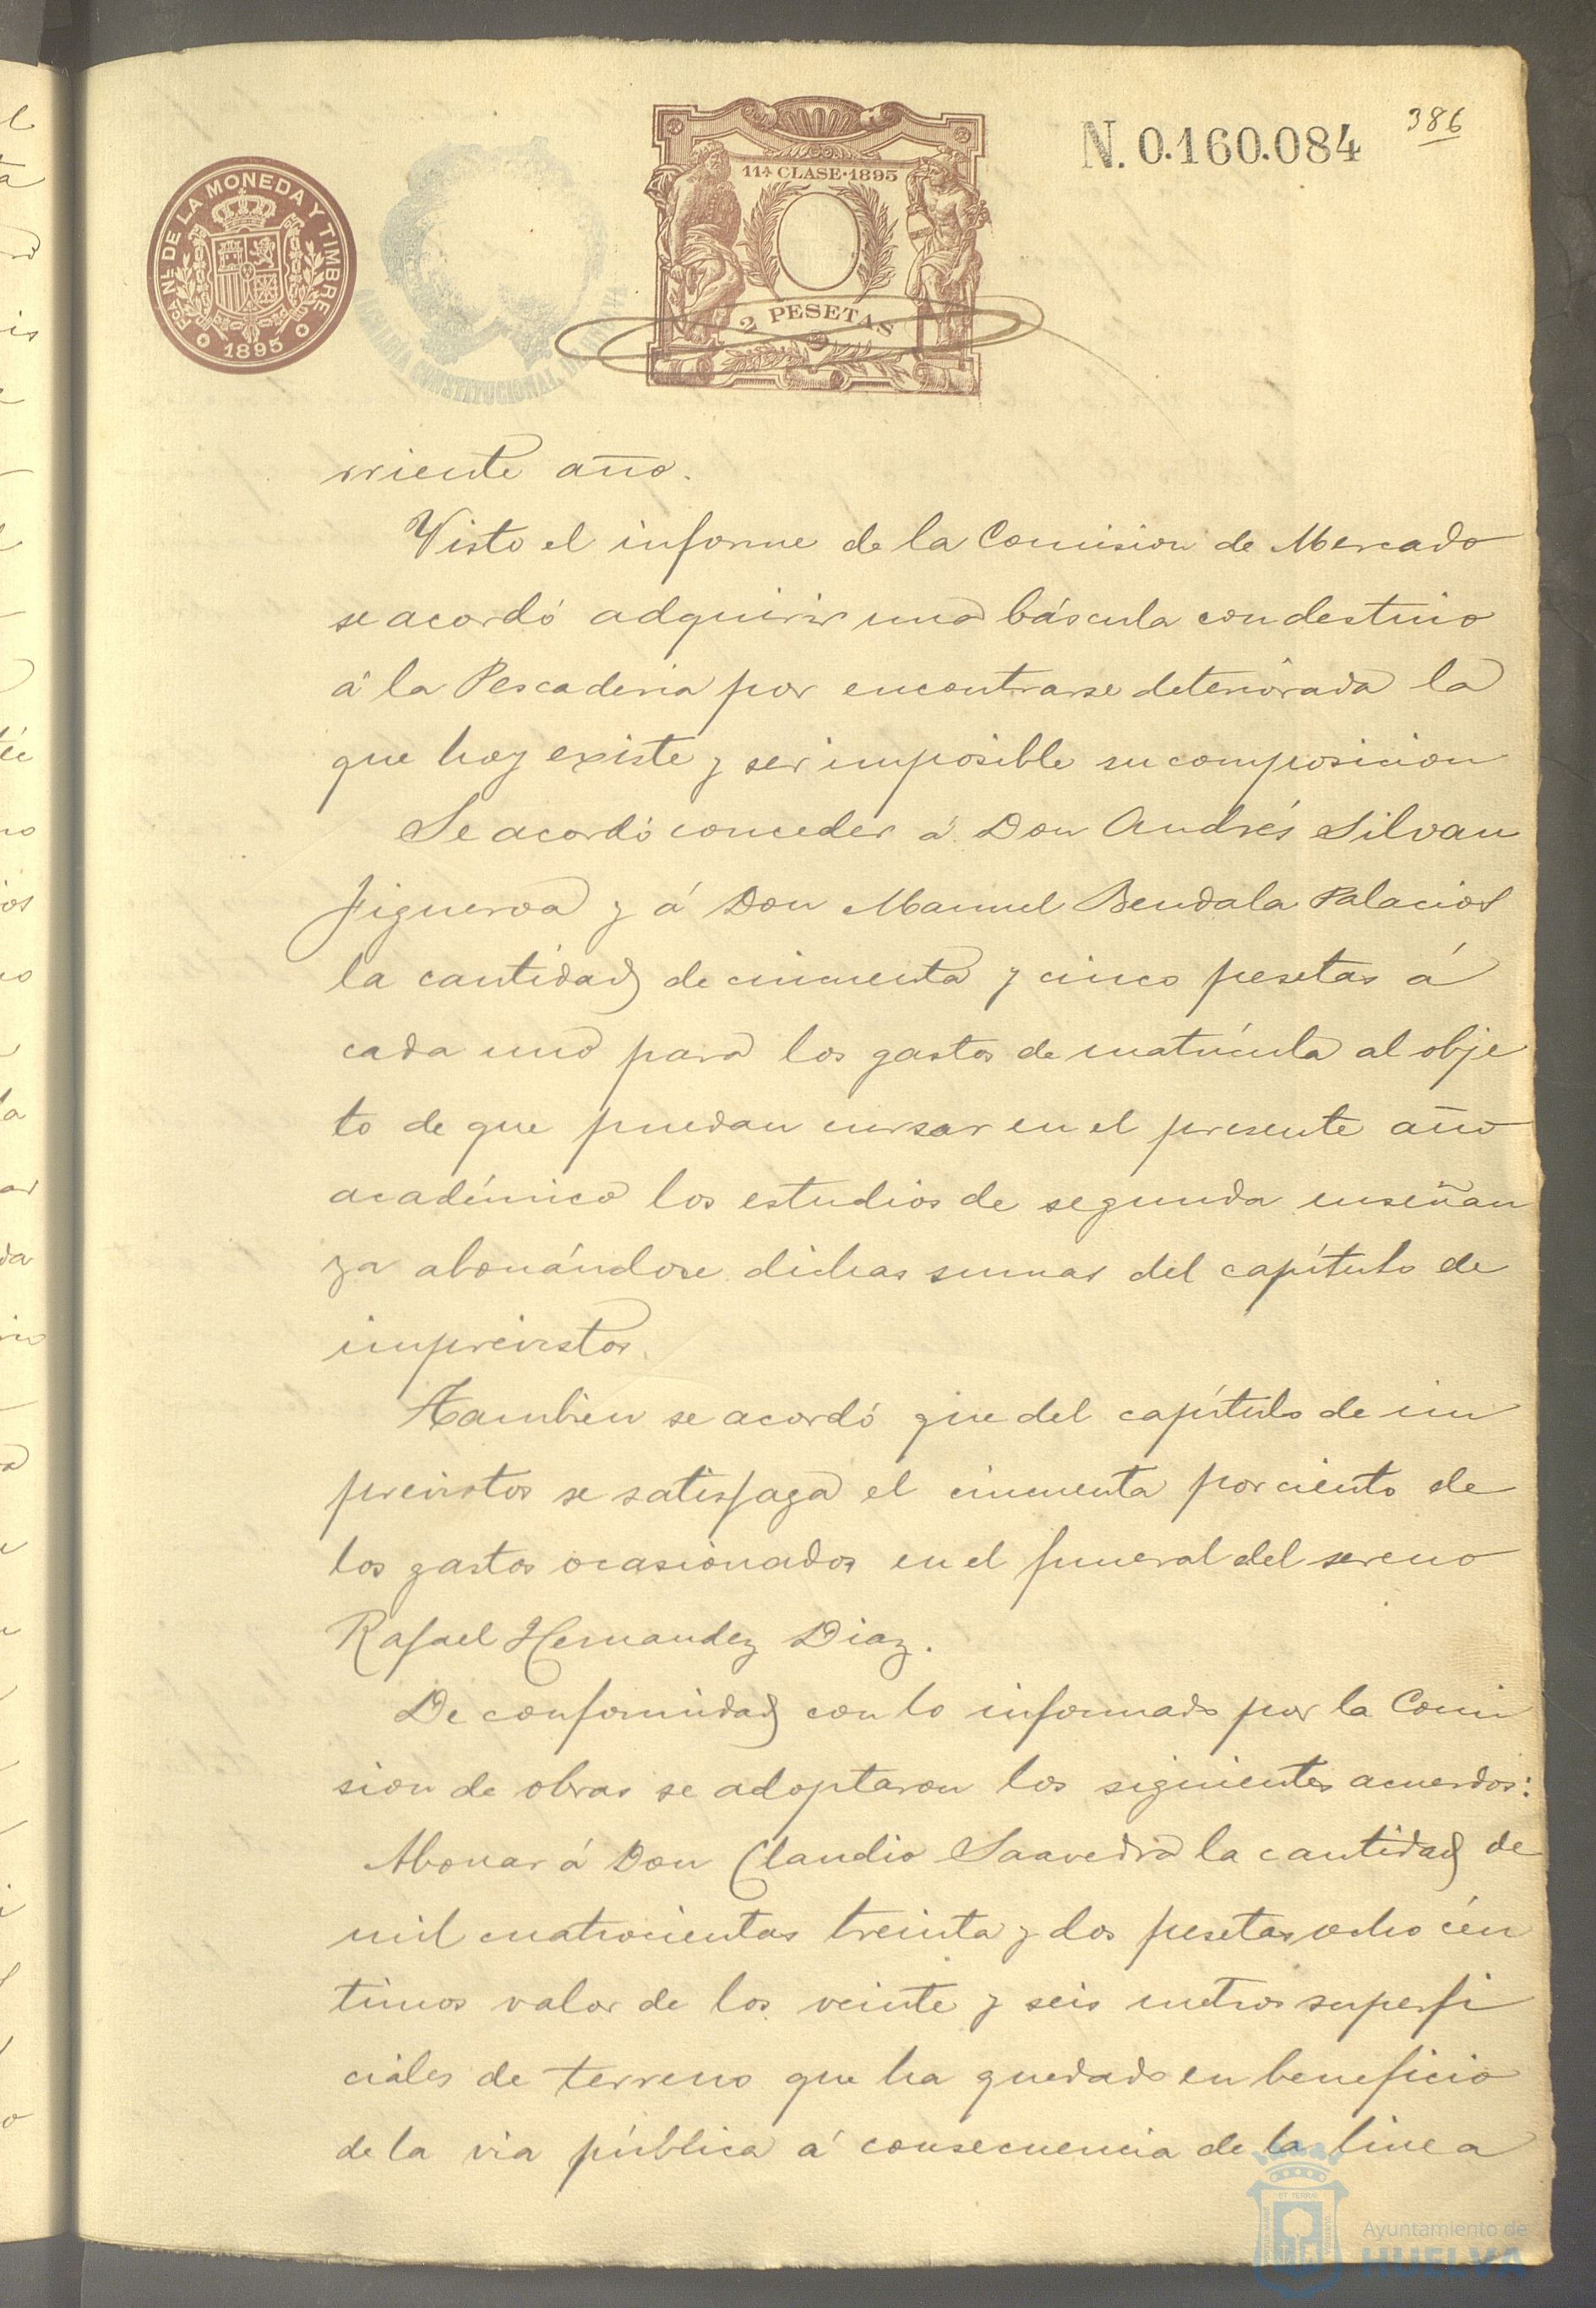 386
N. 0.160.084
11ª CLASE·1895
2 PESETAS
Fª. Nˡ. DE LA MONEDA Y TIMBRE
1895
CONSTITUCIONAL
rriente año.
Visto el informe de la Comision de Mercado
se acordó adquirir una báscula con destino
á la Pescaderia por encontrarse deteriorada la
que hoy existe y ser imposible su composicion
Se acordó conceder á Don Andrés Silvan
Figueroa y á Don Manuel Bendala Palacios
la cantidad de cincuenta y cinco pesetas á
cada uno para los gastos de matrícula al obje
to de que puedan cursar en el presente año
académico los estudios de segunda enseñan
za abonándose dichas sumas del capítulo de
imprevistos.
Tambien se acordó que del capítulo de im
previstos se satisfaga el cincuenta por ciento de
los gastos ocasionados en el funeral del sereno
Rafael Hernandez Diaz.
De conformidad con lo informado por la Comi
sion de obras se adoptaron los siguientes acuerdos:
Abonar á Don Claudio Saavedra la cantidad de
mil cuatrocientas treinta y dos pesetas ocho cén
timos valor de los veinte y seis metros superfi
ciales de terreno que ha quedado en beneficio
de la via pública á consecuencia de la linea
Ayuntamiento de
HUELVA